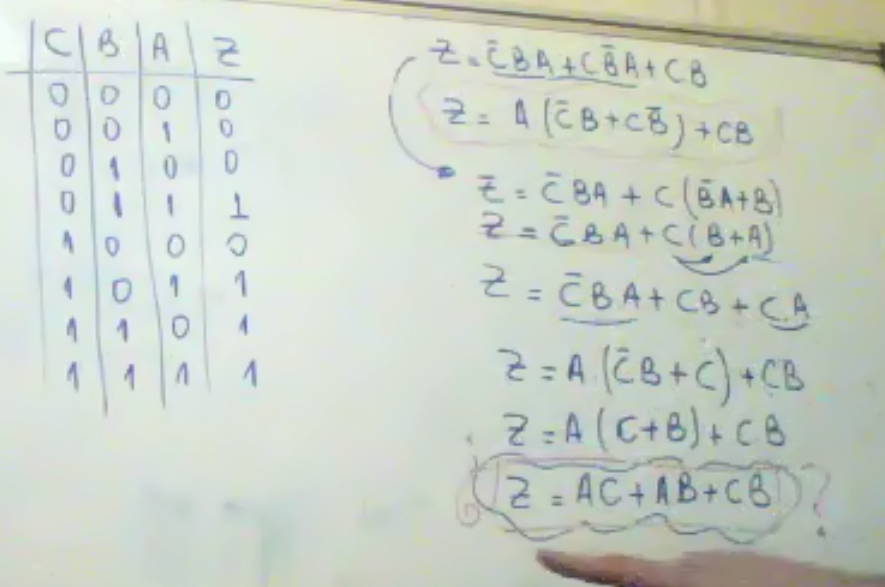 C B A Z
0 0 0 0
0 0 1 0
0 1 0 0
0 1 1 1
1 0 0 0
1 0 1 1
1 1 0 1
1 1 1 1
Z = C̄BA + CB̄A + CB
Z = A (C̄B + CB̄) + CB
Z = C̄BA + C (B̄A + B)
Z = C̄BA + C (B + A)
Z = C̄BA + CB + CA
Z = A (C̄B + C) + CB
Z = A (C + B) + CB
¿ Z = AC + AB + CB ?